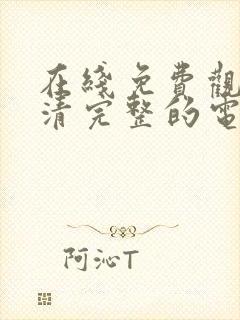 在綫免費觀
清完整的電
阿沁T